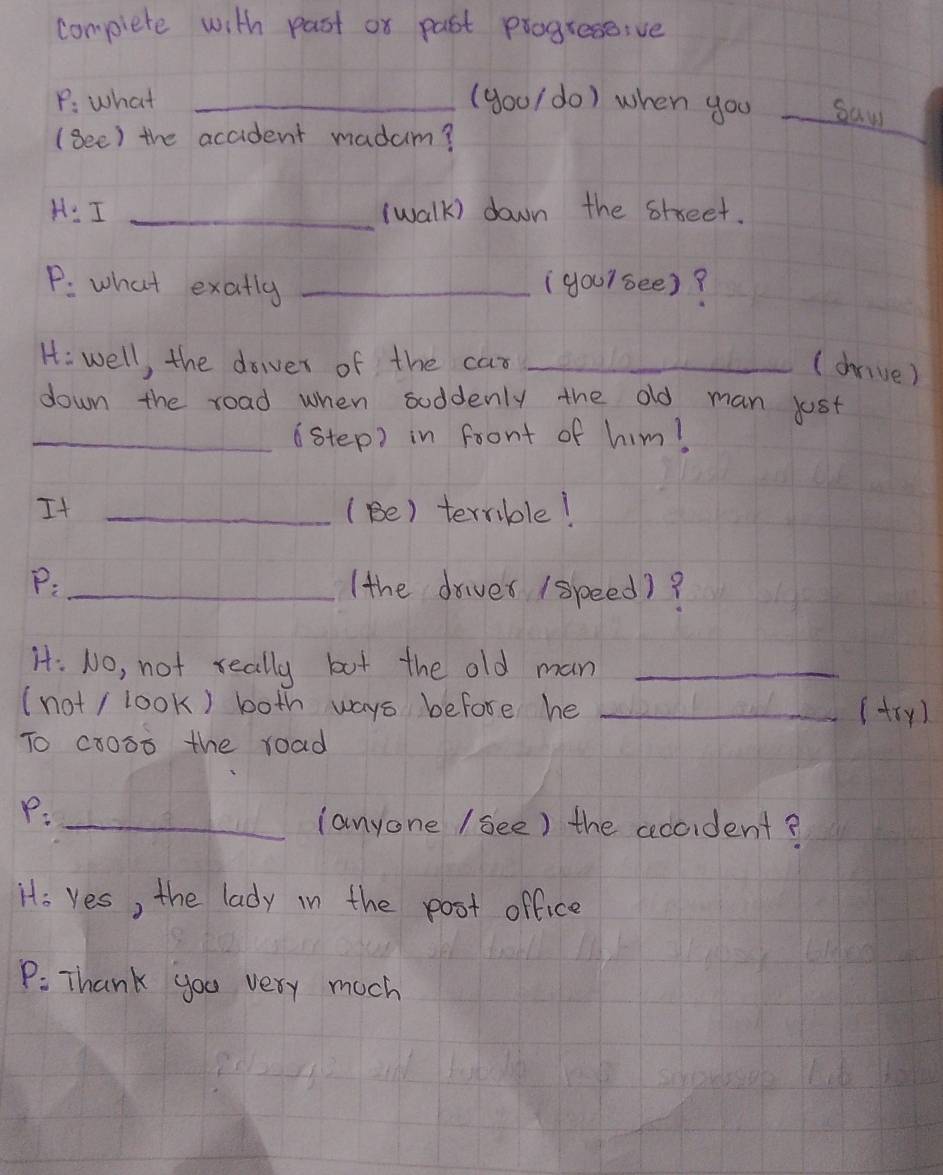 Complete with past or past progressive
P: what ____________ (you/do) when you ___saw___
(See) the accident madam?
H: I ____________ (walk) down the street.
P: what exatly ____________ (you/see)?
H: well, the driver of the car ____________ (drive)
down the road when suddenly the old man just
____________ (step) in front of him!
It ____________ (Be) terrible!
P: ____________ (the driver /speed)?
H: No, not really but the old man ____________
(not / look) both ways before he ____________ (try)
To cross the road
P: ____________ (anyone /see) the accident?
H: Yes, the lady in the post office
P: Thank you very much